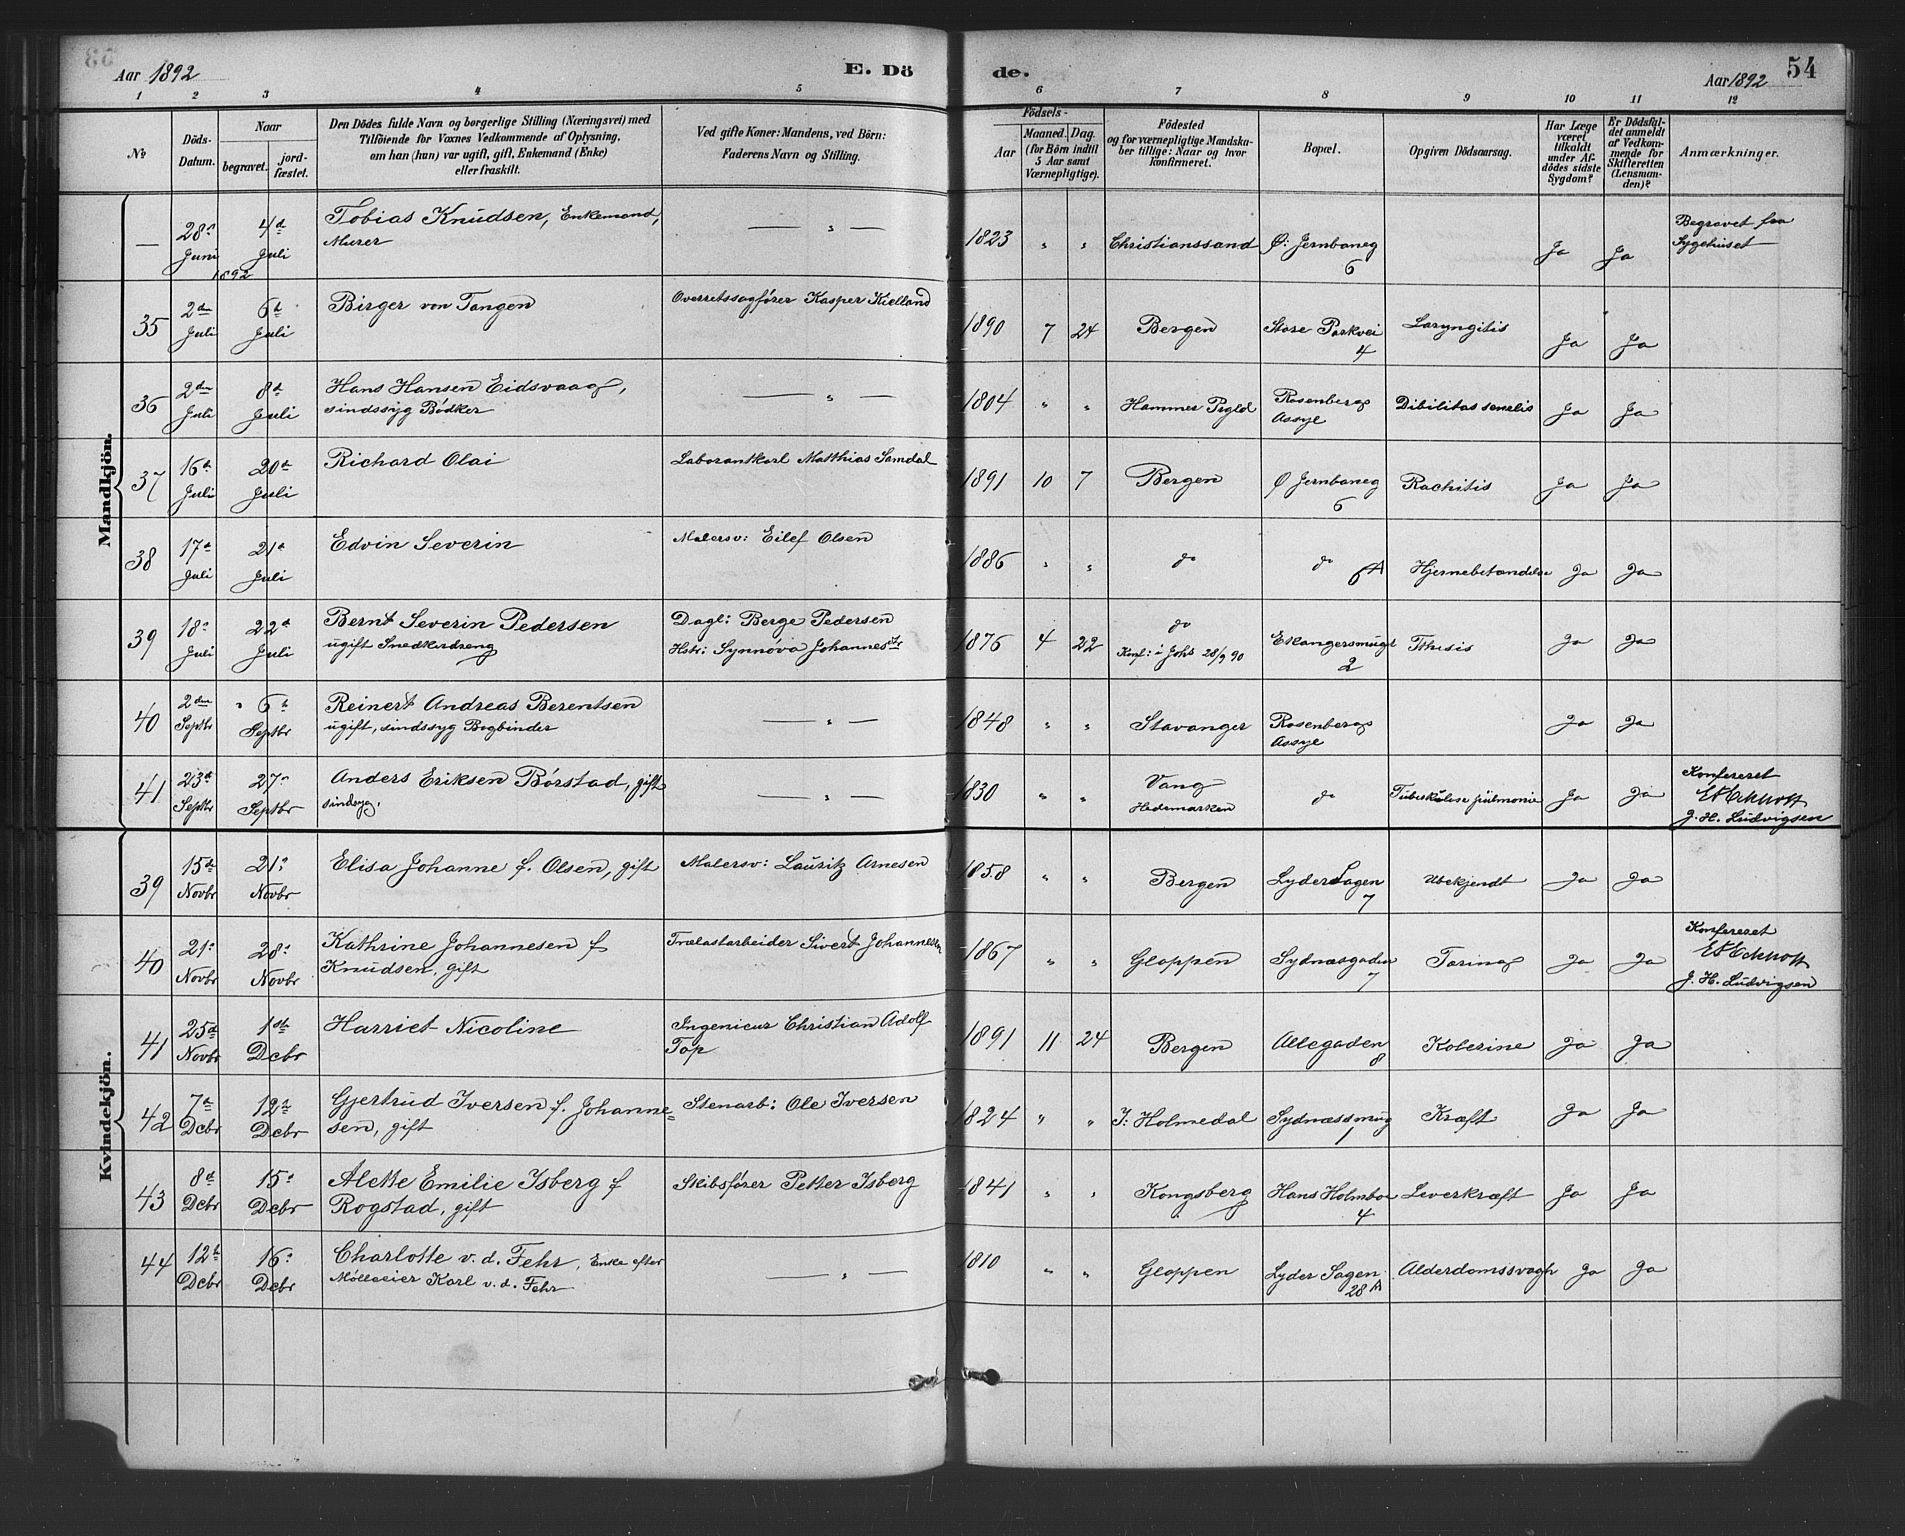 Aar 1892 E. Dö de. Aar 1892 54
1 2 3 4 5 6 7 8 9 10 11 12
No Döds-Datum. Naar begravet. jord-fæstet. Den Dödes fulde Navn og borgerlige Stilling (Næringsvei) med Tilföiende for Voxnes Vedkommende af Oplysning, om han (hun) var ugift, gift, Enkemand (Enke) eller fraskilt. Ved gifte Koner: Mandens, ved Börn: Faderens Navn og Stilling. Födsels- Aar Maaned. Dag. (for Börn indtil 5 Aar samt Værnepligtige). Födested og for værnepligtige Mandskaber tillige: Naar og hvor konfirmeret. Bopæl. Opgiven Dödsaarsag. Har Læge været tilkaldt under Afdödes sidste Sygdom? Er Dödsfaldet anmeldt af Vedkommende for Skifteretten (Lensmanden)? Anmærkninger.
Mandkjön.
— 28de Juni 4de Juli Tobias Knudsen, Enkemand, Murer — " — 1823 " " Christianssand Ø: Jernbaneg 6 Ja Ja Begravet fra Sygehuset
1892
35 2den Juli 6te Juli Birger von Tangen Overretssagfører Kasper Kielland 1890 7 24 Bergen Store Parkvei 4 Laryngitis Ja Ja
36 2den Juli 8de Juli Hans Hansen Eidsvaag, sindssyg Bødker — " — 1804 " " Hammer Prgld Rosenbergs Assyl Dibilitas senelis Ja Ja
37 16de Juli 20de Juli Richard Olai Laborantkarl Matthias Samdal 1891 10 7 Bergen Ø Jernbaneg 6 Rachitis Ja Ja
38 17de Juli 21de Juli Edvin Severin Malersv: Eilef Olsen 1886 " " do do 6A Hjernebetændelse Ja Ja
39 18de Juli 22de Juli Bernt Severin Pedersen ugift Snedkerdreng Dagl: Berge Pedersen Hstr: Synnøva Johannesdtr 1876 4 22 do Konf: i Johs 28/9 90 Ekangersmuget 2 Tthisis Ja Ja
40 2den Septbr 6te Septbr Reinert Andreas Berentsen ugift, sindssyg Bogbinder — " — 1848 " " Stavanger Rosenbergs Assyl Ja Ja
41 23de Septbr 27de Septbr Anders Eriksen Børstad, gift sindsyg. — " — 1830 " " Vang Hedemarken do Tuberkulose pulmonie Ja Ja Konfereret
J. H. Ludvigsen
Kvindekjön.
39 15de Novbr 21de Novbr Elisa Johanne f. Olsen, gift Malersv: Lauritz Arnesen 1858 " " Bergen Lyder Sagen 7 Ubekjendt Ja Ja
40 21de Novbr 28de Novbr Kathrine Johannesen f Knudsen, gift Trælastarbeider Sivert Johannesen 1867 " " Gloppen Sydnæsgaden 7 Tæring Ja Ja Konfereret
J. H. Ludvigsen
41 25de Novbr 1ste Dcbr Harriet Nicoline Ingenieur Christian Adolf Top 1891 11 24 Bergen Allegaden 8 Kolerine Ja Ja
42 7de Dcbr 12te Dcbr Gjertrud Iversen f. Johannesen, gift Stenarb: Ole Iversen 1824 " " I: Holmedal Sydnæssmug 1 Kræft Ja Ja
43 8de Dcbr 15de Dcbr Alette Emilie Isberg f Rogstad, gift Skibsfører Petter Isberg 1841 " " Kongsberg Hans Holmboe 4 Leverkræft Ja Ja
44 12te Dcbr 16de Dcbr Charlotte v. d. Fehr, Enke efter Mølleeier Karl v. d. Fehr — " — 1810 " " Gloppen Lyder Sagen 28A Alderdomssvagh Ja Ja